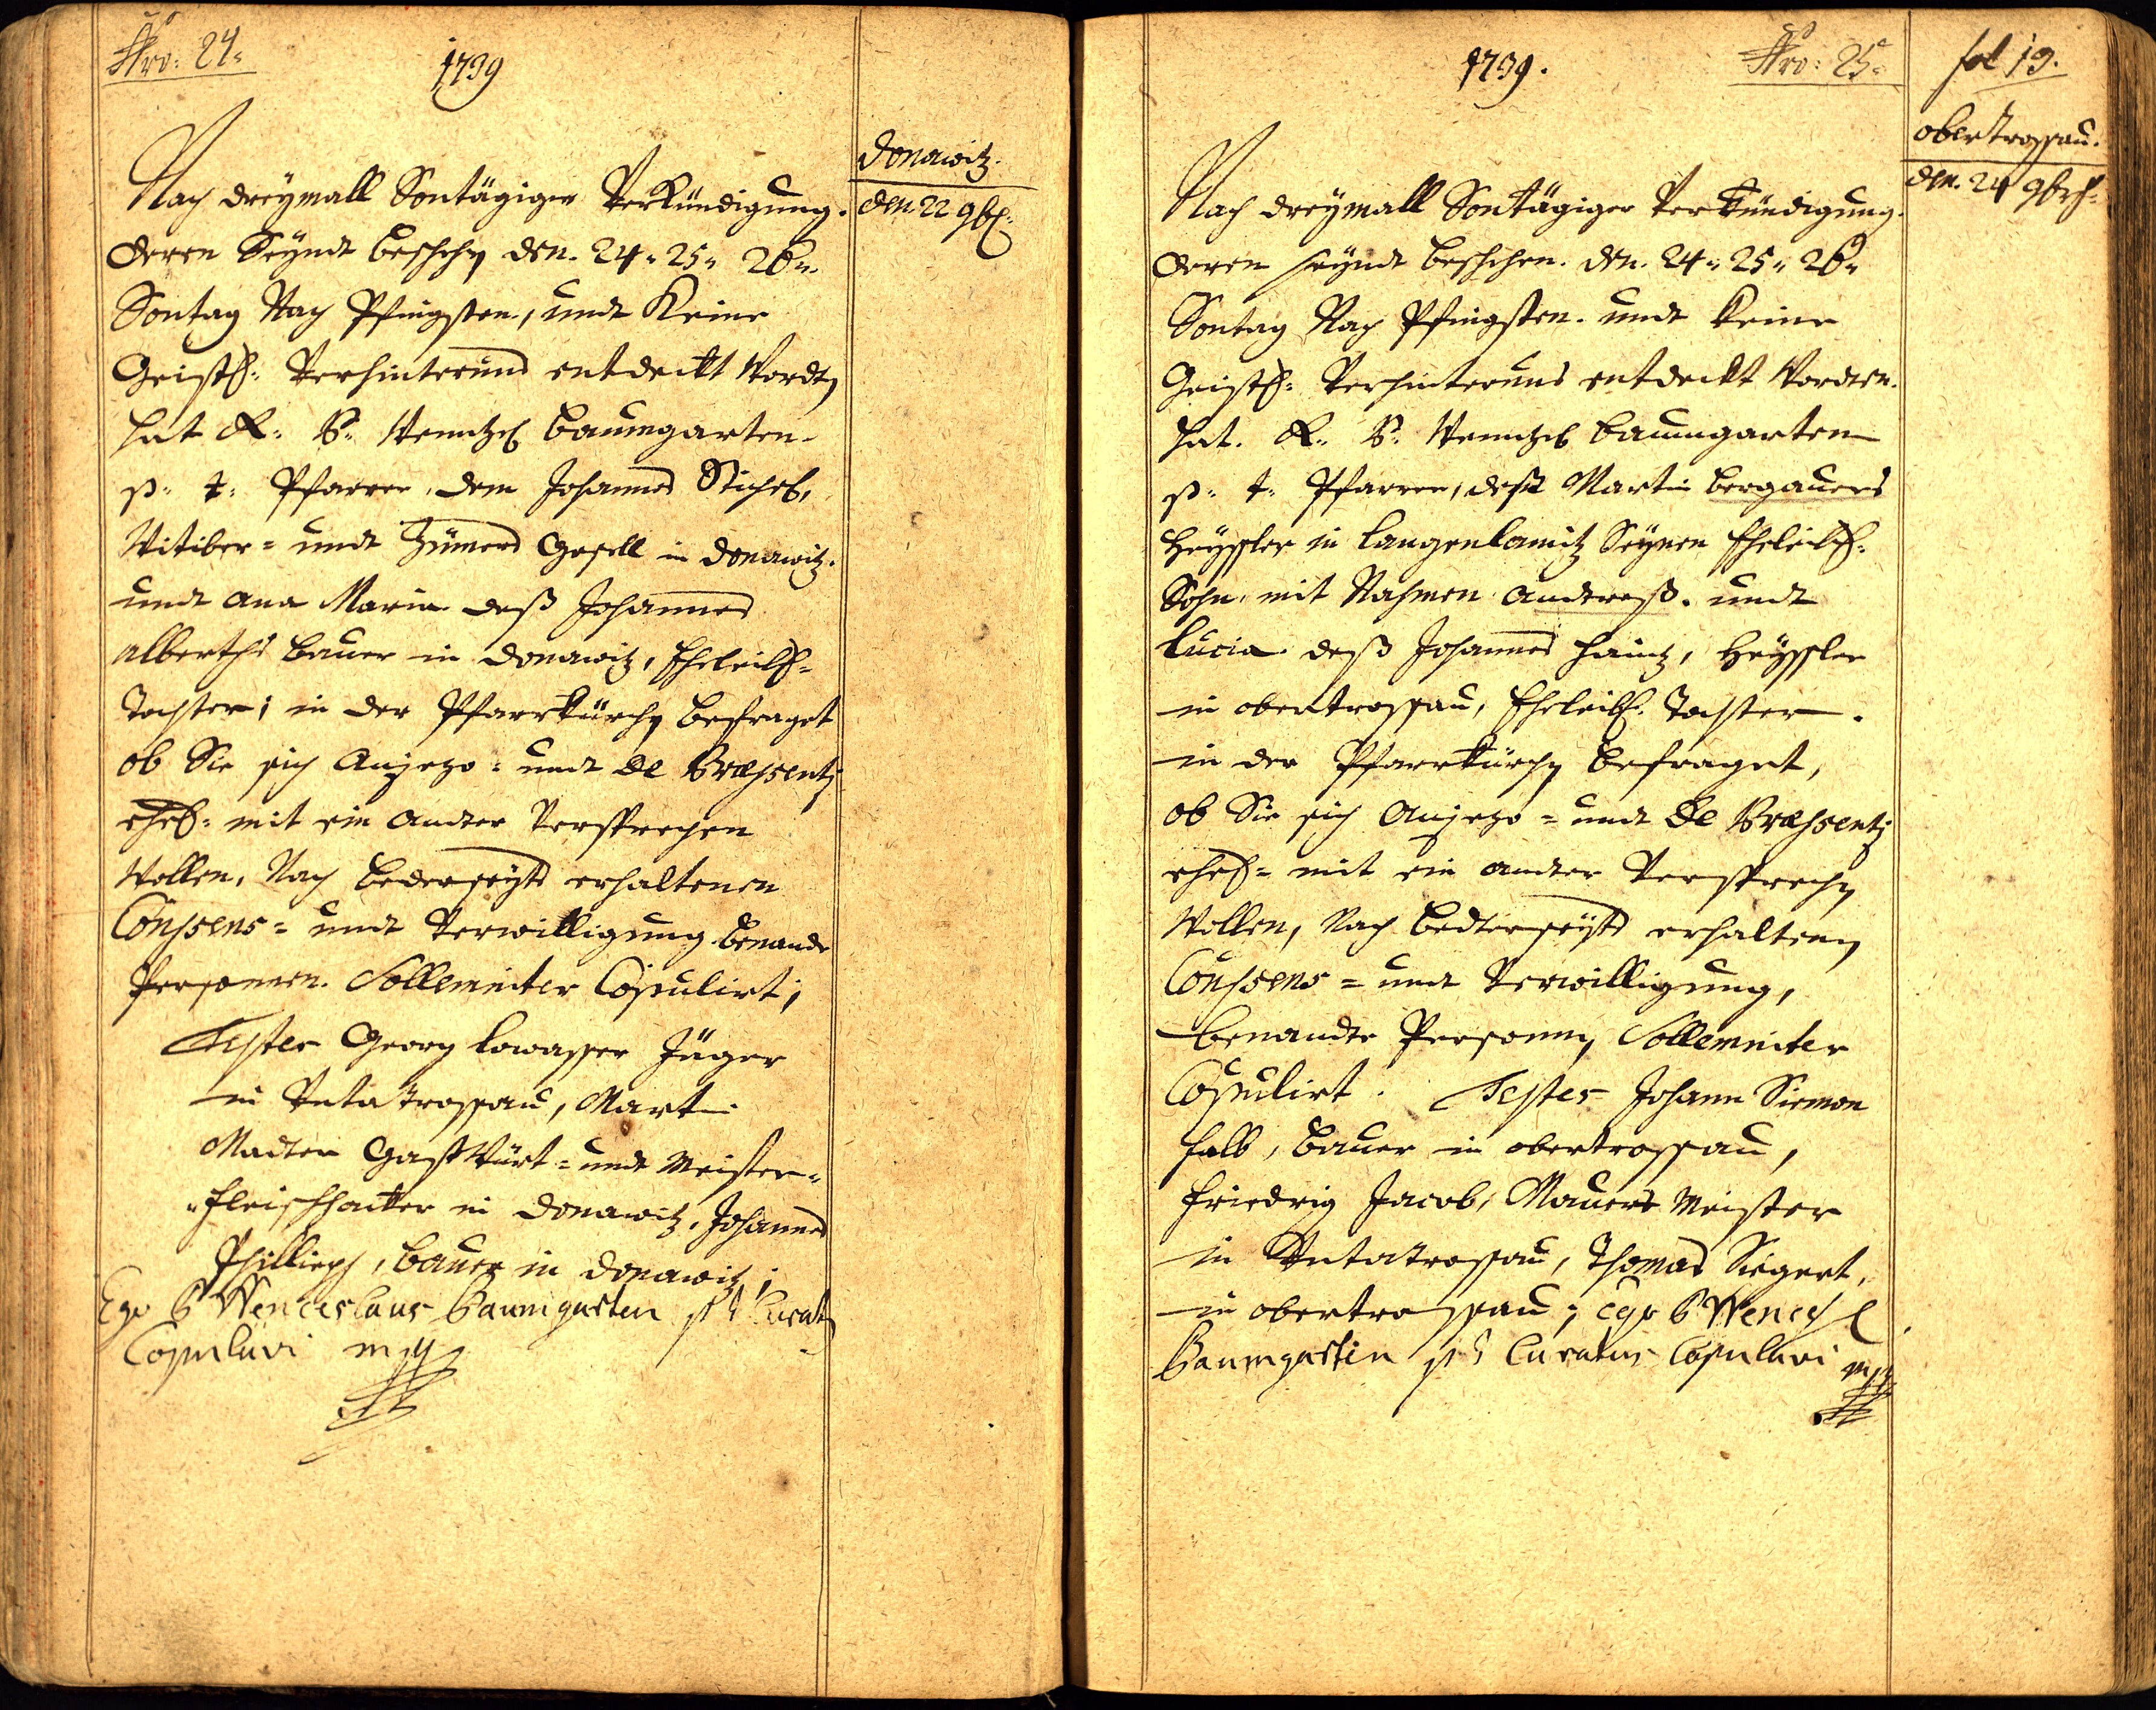 Nro: 24.
1739
Donawitz.
den 22 9b[ris]
Nach dreymall Sontägiger Verkündigung.
deren Seyndt beschehen den. 24. 25. 26.
Sontag Nach Pfingsten, undt Keine
Geistl: Verhinternus entdeckt Worden
hat R. P. Wentzel Baumgarten
p. t. Pfarrer, dem Johannes
Witiber = undt Zümers Gesell in Donawitz.
undt Ana Maria deß Johannes
Alberths Bauer in Donawitz, Eheleibl:
Tochter; in der Pfarrkürchen befraget
ob Sie sich Anjezo = undt De Præsenti
ehel: mit ein ander Versprechen
Wollen, Nach bederseyts erhaltenen
Consens = undt Verwilligung benande
Personnen. Sollemniter Copulirt;
Testes Georg Lowasser Jäger
in Untatrossau, Martin
Madter Gastwürt = undt Meister
Fleischhacker in Donawitz, Johannes
Phillipp, Bauer in Donawitz;
Ego P Wenceslaus Baumgarten p t Curatus
Copulavi mp
1739.
Nro: 25.
fol 19.
obertrossau.
den. 24 9bris
Nach dreymall Sontägiger Verkündigung.
deren seyndt beschehen. den. 24. 25. 26.
Sontag Nach Pfingsten. undt keine
Geistl: Verhinternus entdeckt Worden.
hat. R. P. Wentzel Baumgarten
p. t. Pfarrer, deß Martin Bergauers
Heyssler in Langenlamitz Seynen Eheleibl:
Sohn, mit Nahmen Andereß. undt
Lucia. deß Johannes Haintz, Heyssler
in obertrossau, Eheleibl. Tochter.
in der Pfarrkürchen befraget,
ob Sie sich Anjezo = undt De Præsenti
ehel = mit ein ander Versprechen
Wollen, Nach bedterseyts erhaltenen
Consens = undt Verwilligung,
benandte Personnen, Sollemniter
Copulirt. Testes Johann Siemon
halb, Bauer in obertrossau,
Friedrig Jacob, Maurer Meister
in Untatrossau, Thomas Siegert,
in obertrossau; Ego P Wencesl
Baumgarten p t Curatus Copulavi mp